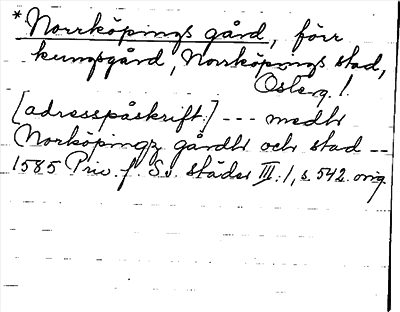 * Norrköpings gård, förr
kungsgård, Norrköpings stad,
Österg. l.
[adresspåskrift:] --- medhr
Norköpingz gårdhr och stad --
1585 Priv. f. Sv. städer III:1, s. 542. orig.